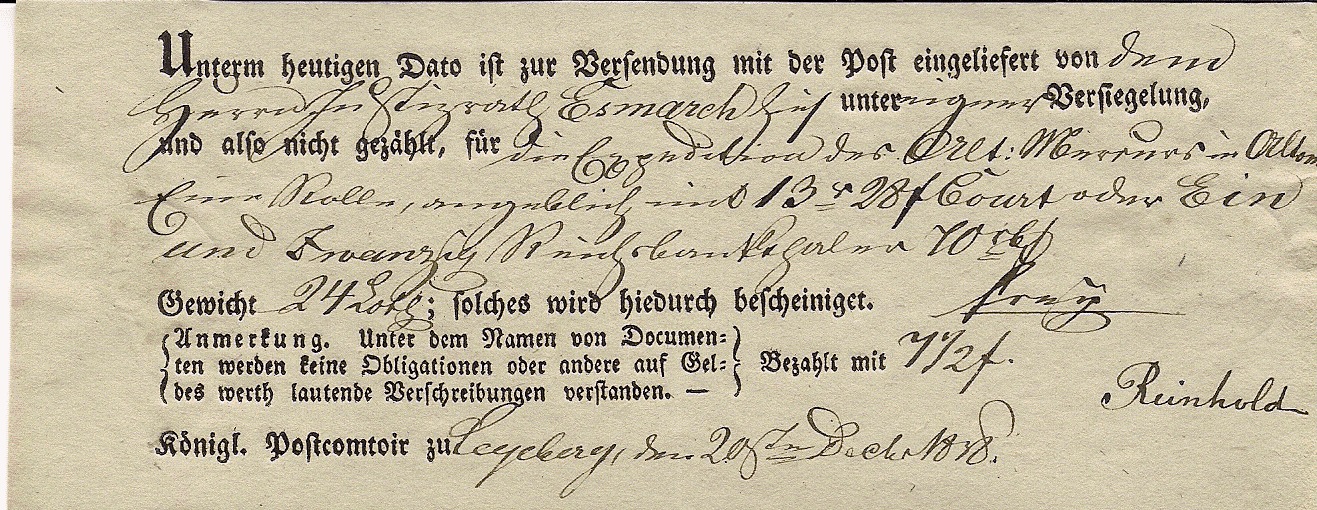 Unterm heutigen Dato ist zur Versendung mit der Post eingeliefert von dem
Herrn Justizrath Esmarch hies. unter eigner Versiegelung,
und also nicht gezählt, für die Expedition des Alt: Mercurs in Alton
Eine Rolle, angeblich mit 13 r 28 f Court oder Ein
und Zwanzig Reichsbankthaler 70 rbf
Gewicht 24 Loth; solches wird hiedurch bescheiniget. frey
Anmerkung. Unter dem Namen von Documen=
ten werden keine Obligationen oder andere auf Gel=
des werth lautende Verschreibungen verstanden. —
Bezahlt mit 7 1/2 f.
Reinhold
Königl. Postcomtoir zu Segeberg, den 20sten Decbr